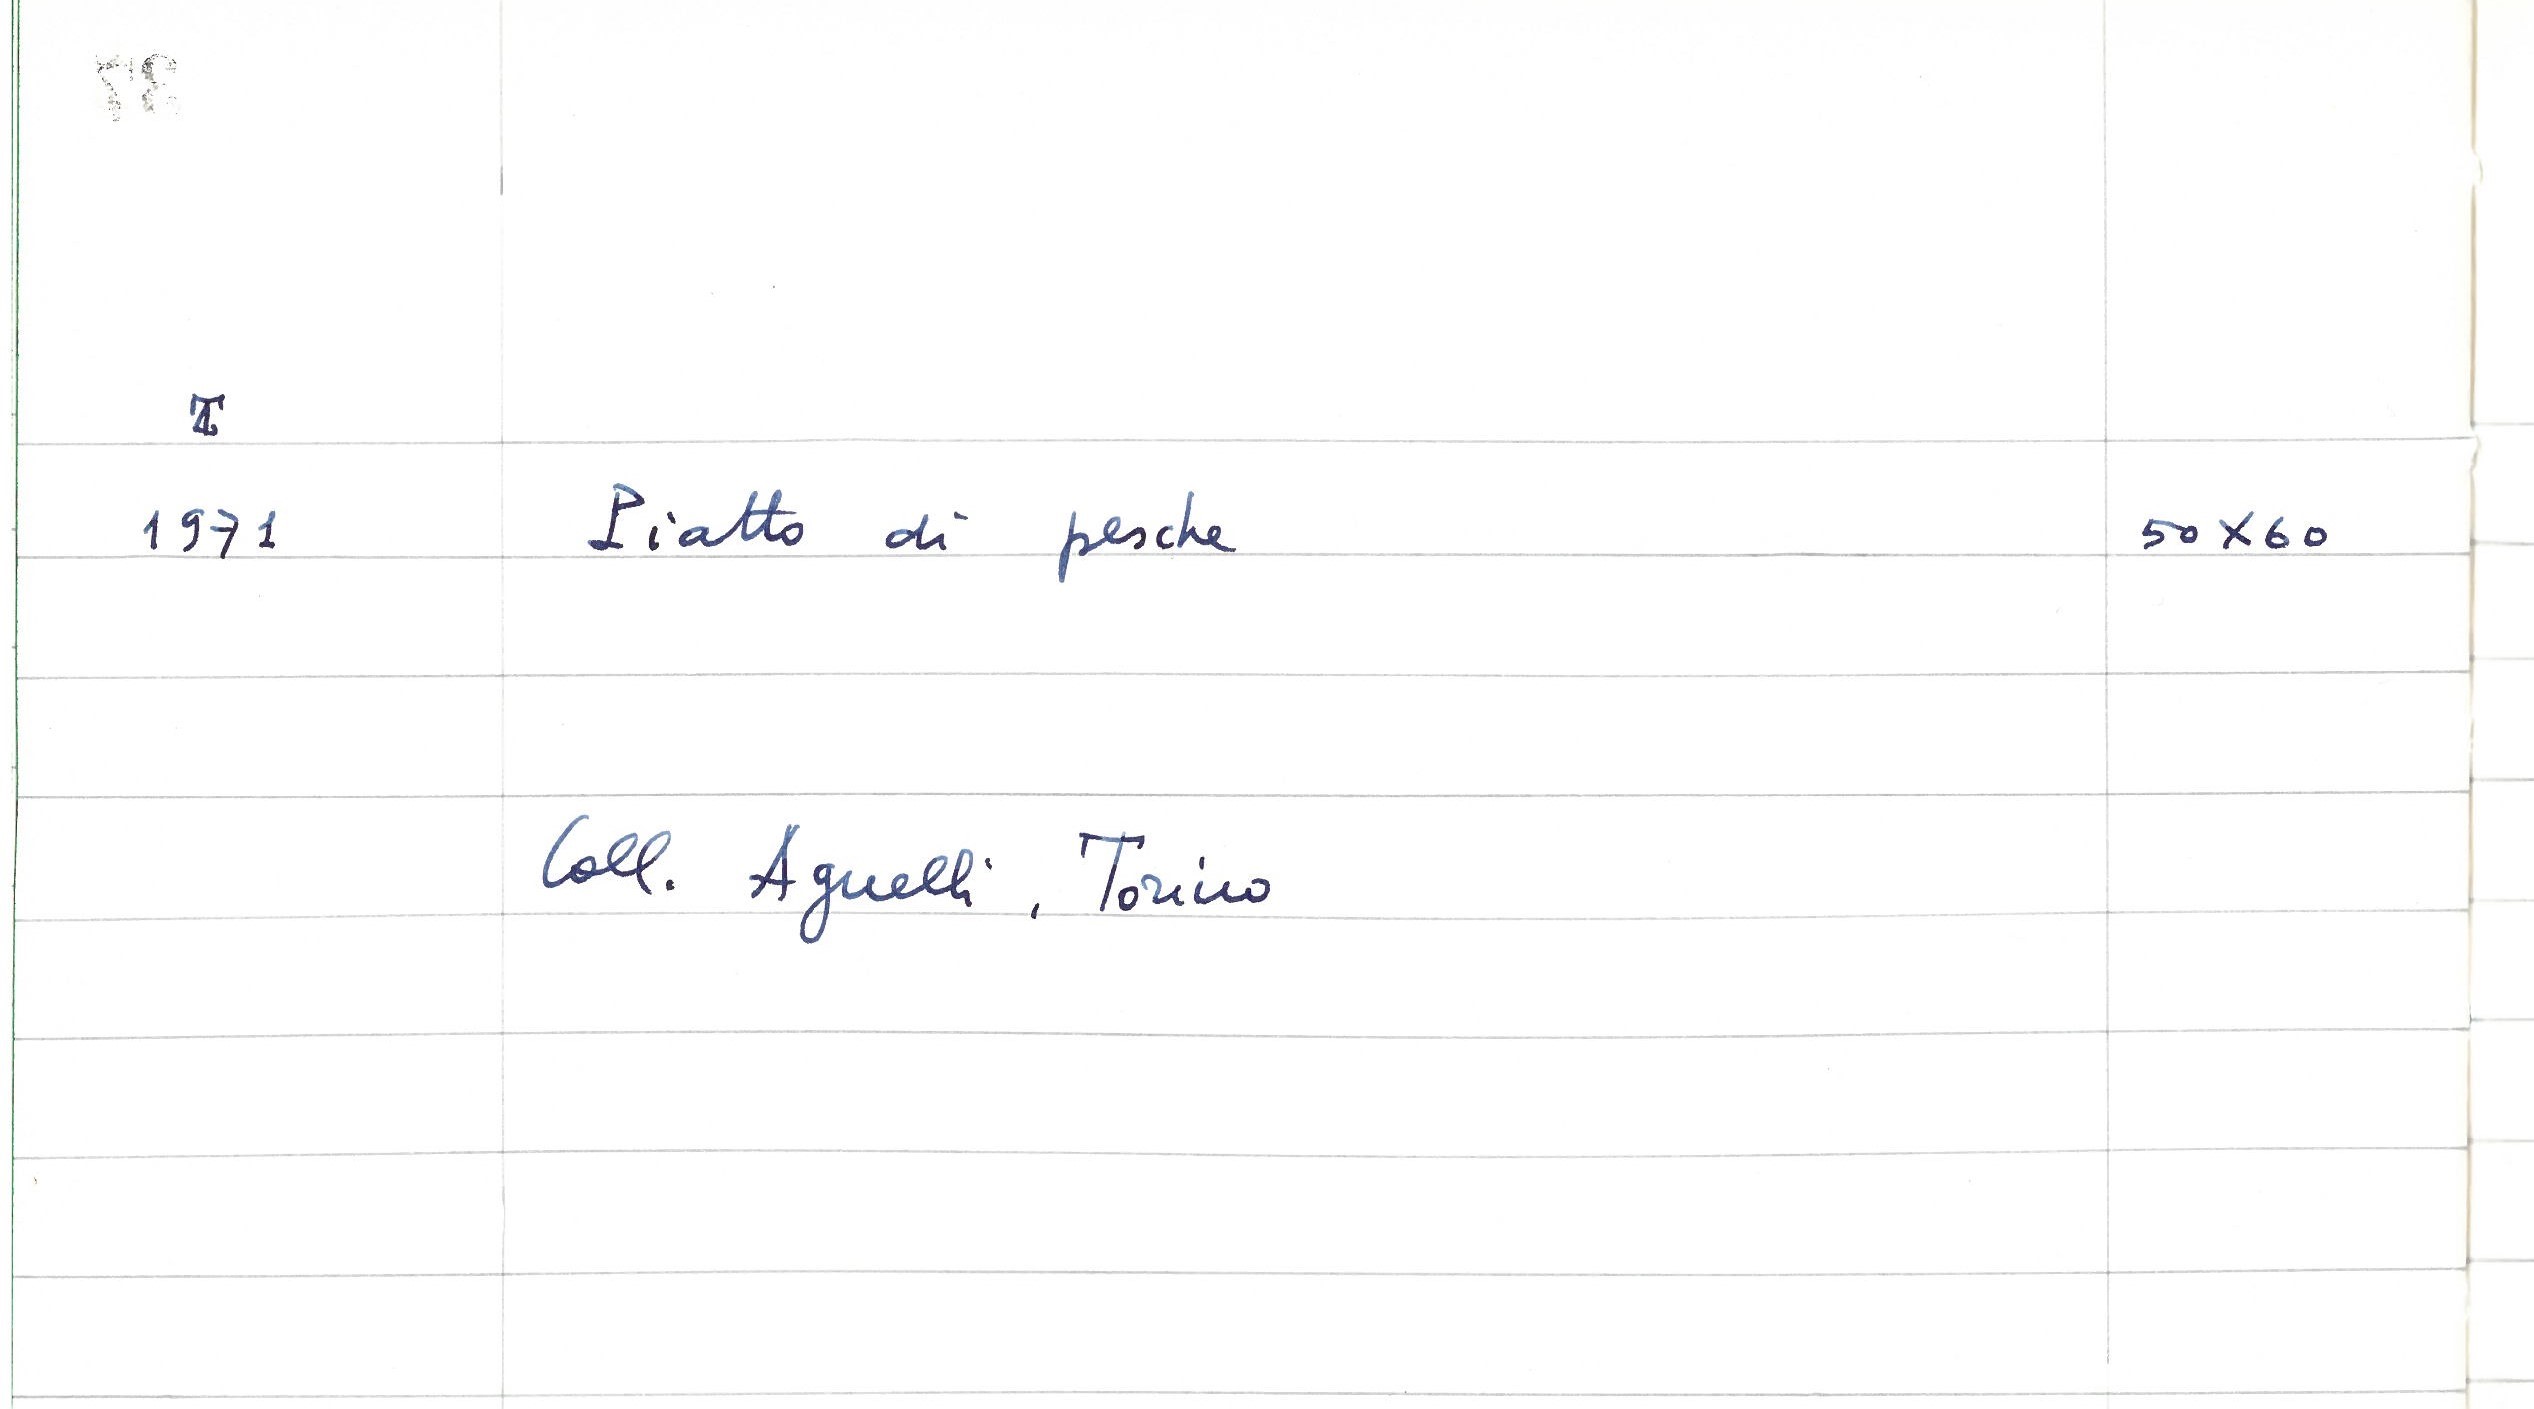 37
T
1971 Piatto di pesche 50 X 60
Coll. Agnelli, Torino